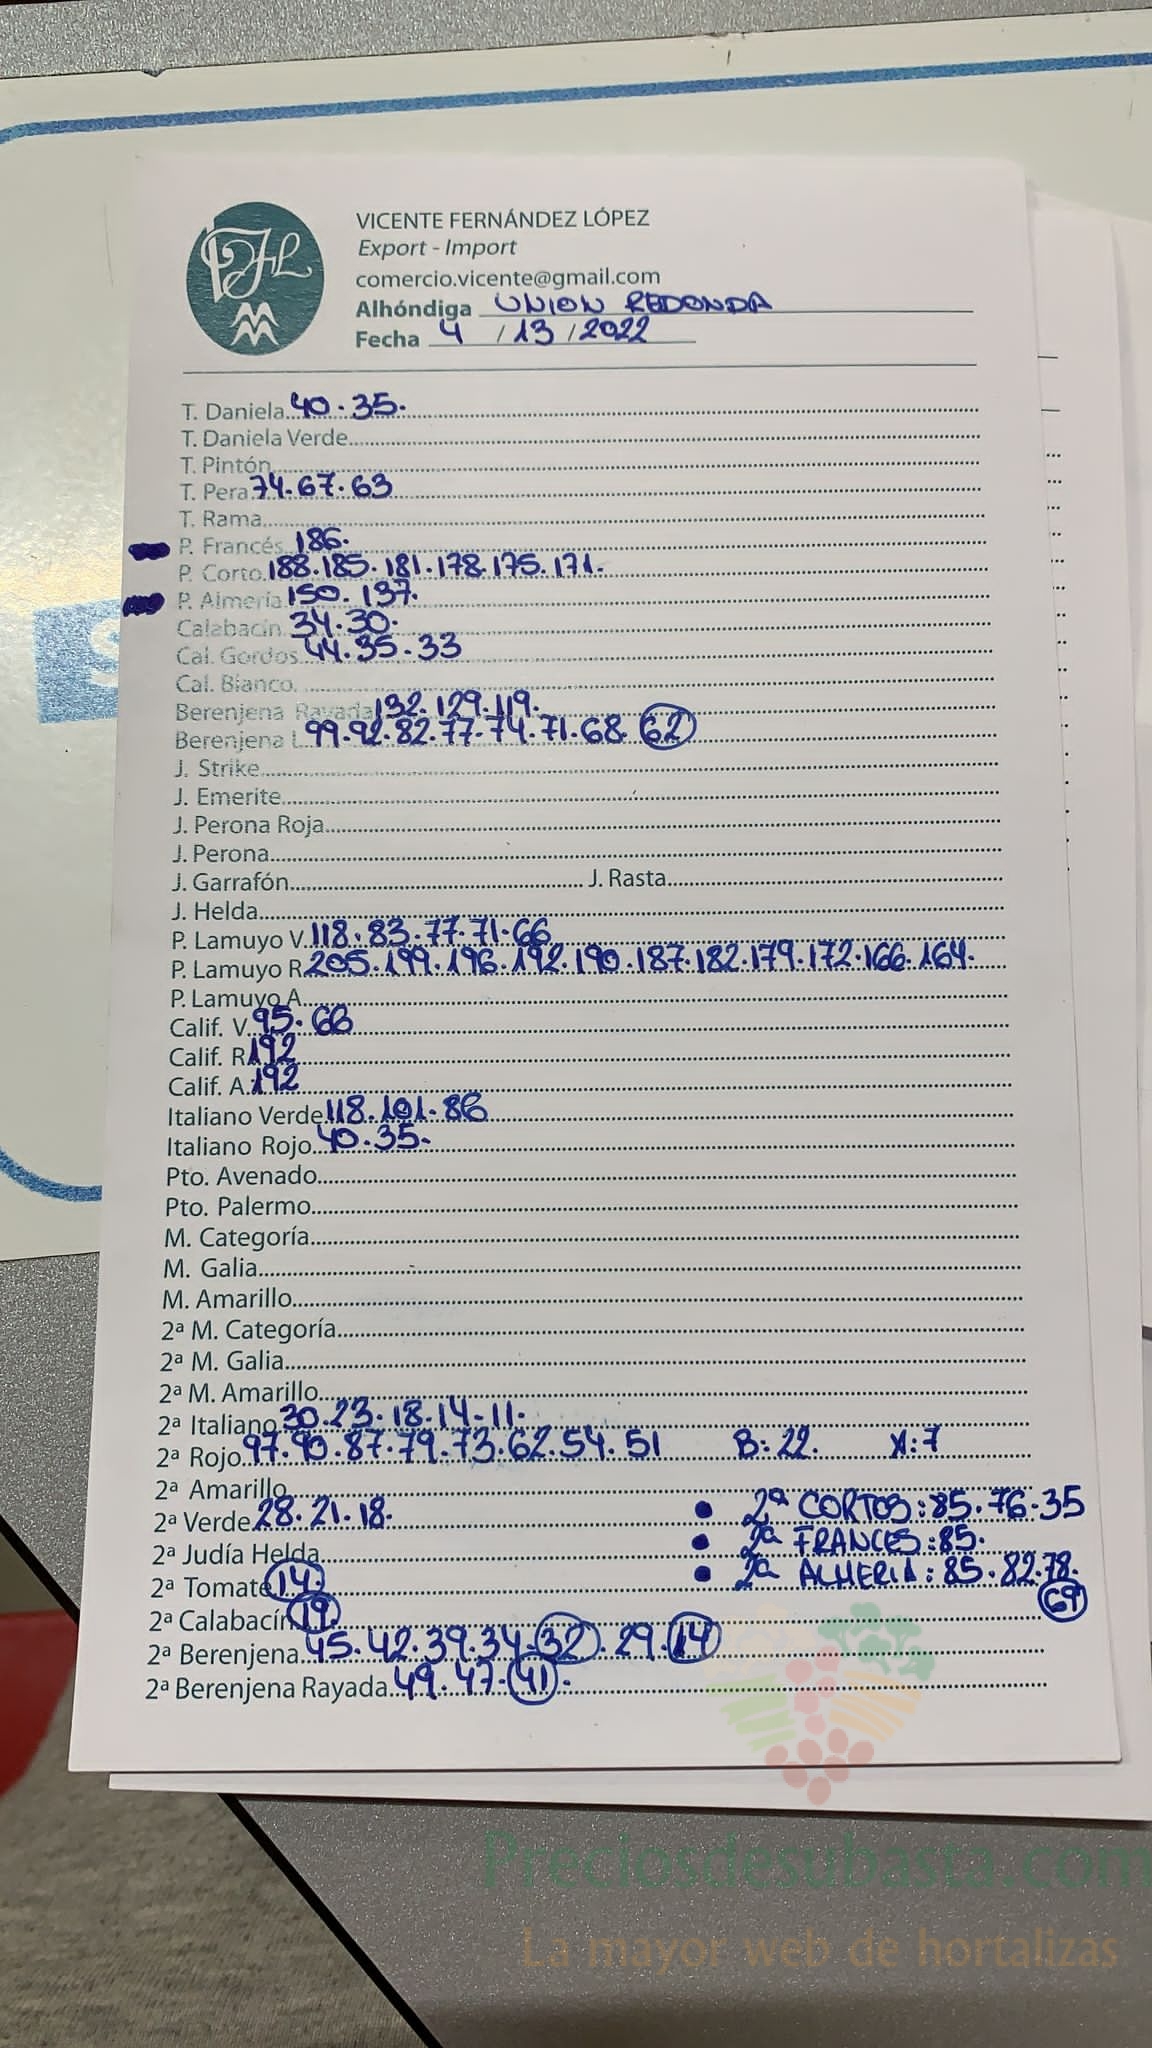 VICENTE FERNÁNDEZ LÓPEZ
Export - Import
comercio.vicente@gmail.com
Alhóndiga UNION REDONDA
Fecha 4 / 13 / 2022
T. Daniela 40. 35.
T. Daniela Verde
T. Pintón
T. Pera 74. 67. 63
T. Rama
P. Francés 186.
P. Corto 188. 185. 181. 178. 175. 171.
P. Almería 150. 137.
Calabacín 34. 30.
Cal. Gordos 44. 35. 33
Cal. Blanco
Berenjena Rayada 132. 129. 119.
Berenjena L 99. 92. 82. 77. 74. 71. 68. 62
J. Strike
J. Emerite
J. Perona Roja
J. Perona
J. Garrafón J. Rasta
J. Helda
P. Lamuyo V. 118. 83. 77. 71. 66
P. Lamuyo R 205. 199. 196. 192. 190. 187. 182. 179. 172. 166. 164.
P. Lamuyo A
Calif. V. 95. 66
Calif. R 192
Calif. A. 192
Italiano Verde 118. 101. 86
Italiano Rojo 40. 35.
Pto. Avenado
Pto. Palermo
M. Categoría
M. Galia
M. Amarillo
2ª M. Categoría
2ª M. Galia
2ª M. Amarillo
2ª Italiano 30. 23. 18. 14. 11.
2ª Rojo 97. 90. 87. 79. 73. 62. 54. 51 B: 22. :7
2ª Amarillo
2ª Verde 28. 21. 18. • 2ª CORTOS: 85. 76. 35
2ª Judía Helda • 2ª FRANCES: 85.
2ª Tomate 14. • 2ª ALMERIA: 85. 82. 78.
2ª Calabacín 19. 69
2ª Berenjena 45. 42. 39. 34. 32. 29. 14
2ª Berenjena Rayada 49. 47. 41.
Preciosdesubasta.com
La mayor web de hortalizas